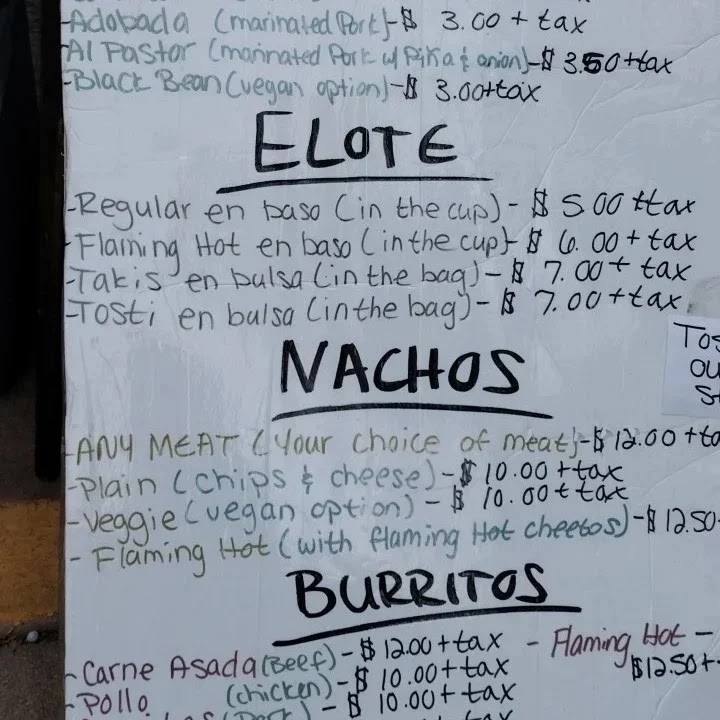 -Adobada (marinated Pork)-$ 3.00 + tax
-Al Pastor (marinated Pork w/ Piña & onion)-$ 3.50+tax
-Black Bean (vegan option)-$ 3.00+tax
ELOTE
-Regular en baso (in the cup) - $ 5.00 +tax
-Flaming Hot en baso (in the cup)- $ 6.00 + tax
-Takis en bulsa (in the bag) - $ 7.00 + tax
-Tosti en bulsa (in the bag) - $ 7.00 + tax
Tos
ou
S
NACHOS
-ANY MEAT (Your choice of meat)-$ 12.00 + ta
-Plain (chips & cheese) - $ 10.00 + tax
-Veggie (vegan option) - $ 10.00 + tax
- Flaming Hot (with flaming Hot cheetos) -$ 12.50
BURRITOS
-Carne Asada (Beef) - $ 12.00 + tax
- Flaming Hot -
$12.50+
-Pollo (chicken) - $ 10.00 + tax
(Pork) - $ 10.00 + tax